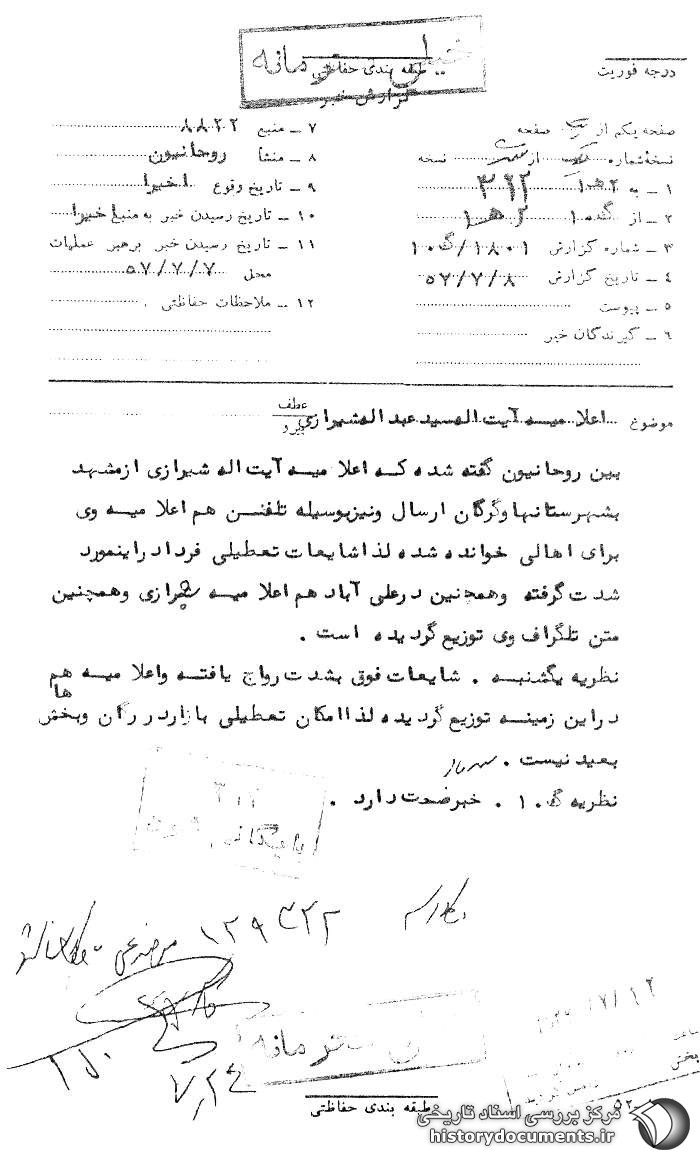 خیلی محرمانه
طبقه بندی حفاظتی
درجه فوریت
گزارش خبر
صفحه یکم از صفحه
نسخهٔ شماره از نسخه
۱ ـ به ۲ هـ ۱ ۳۱۲
۲ ـ از ۱۰ ک ۲ هـ ۱
۳ ـ شماره گزارش ۱۸۰۱/ ۱۰ ک
٤ ـ تاریخ گزارش ۵۷/۷/۸
۵ ـ پیوست
٦ ـ گیرندگان خبر
۷ ـ منبع ۸۸۲۲
۸ ـ منشا روحانیون
۹ ـ تاریخ وقوع اخیرا
۱۰ ـ تاریخ رسیدن خبر به منبع اخیرا
۱۱ ـ تاریخ رسیدن خبر برهبر عملیات
محل ۵۷/۷/۷
۱۲ ـ ملاحظات حفاظتی .
موضوع اعلا میـه آیت الـه سید عبد الـه شیرازی عطف پیرو
بین روحانیون گفته شده کـه اعلا میـه آیت اله شیرازی ازمشهد
بشهرستانها وگرگان ارسال ونیز بوسیله تلفـن هم اعلا میـه وی
برای اهالی خوانده شده لذا شایعات تعطیلی فردا دراینمورد
شدت گرفته وهمچنین درعلی آباد هم اعلا میـه شیرازی وهمچنین
متن تلگراف وی توزیع گردیده است .
نظریه یکشنبـه . شایعات فوق بشدت رواج یافتـه واعلا میـه هم
ها
دراین زمینـه توزیع گردیده لذا امکان تعطیلی بازار در گان وبخش
بعید نیست .
نظریه ۱۰ ک . خبر صحت دارد .
۳۱۲
بایگانی
۱۲۹۴۳۲
۱۵۰
۷٫۲٤
طبقه بندی حفاظتی
مرکز بررسی اسناد تاریخی
historydocuments.ir